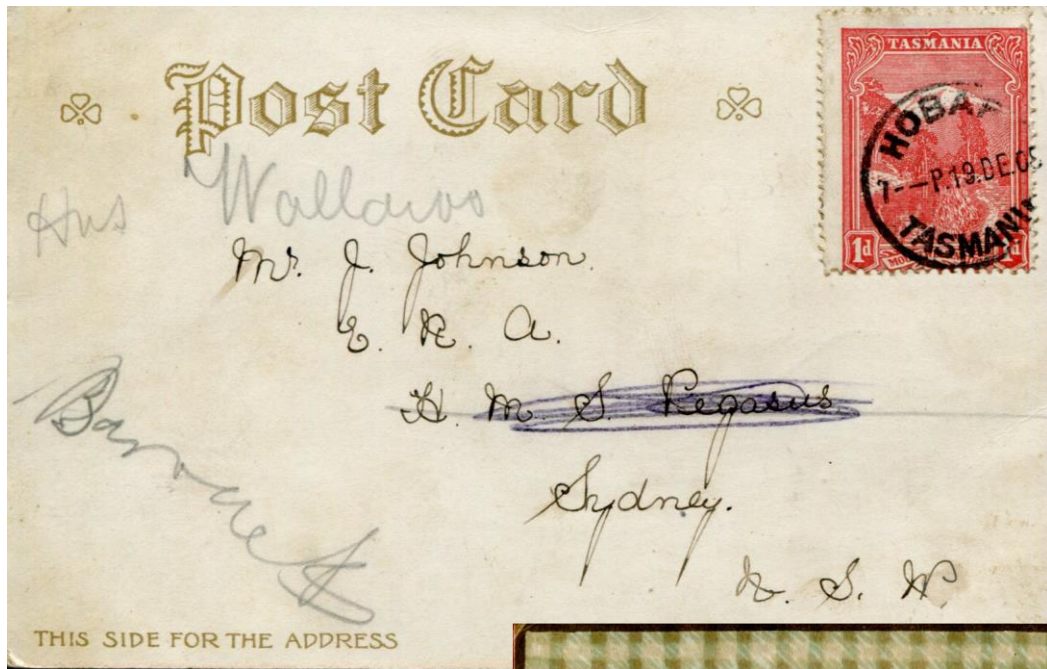 Post Card
TASMANIA
HOBA
7--P.19.DE.05
TASMANI
1d
Wallaroo
Hms
Mr. J. Johnson.
E. R. A.
H. M. S. Pegasus
Sydney.
N. S. W.
THIS SIDE FOR THE ADDRESS